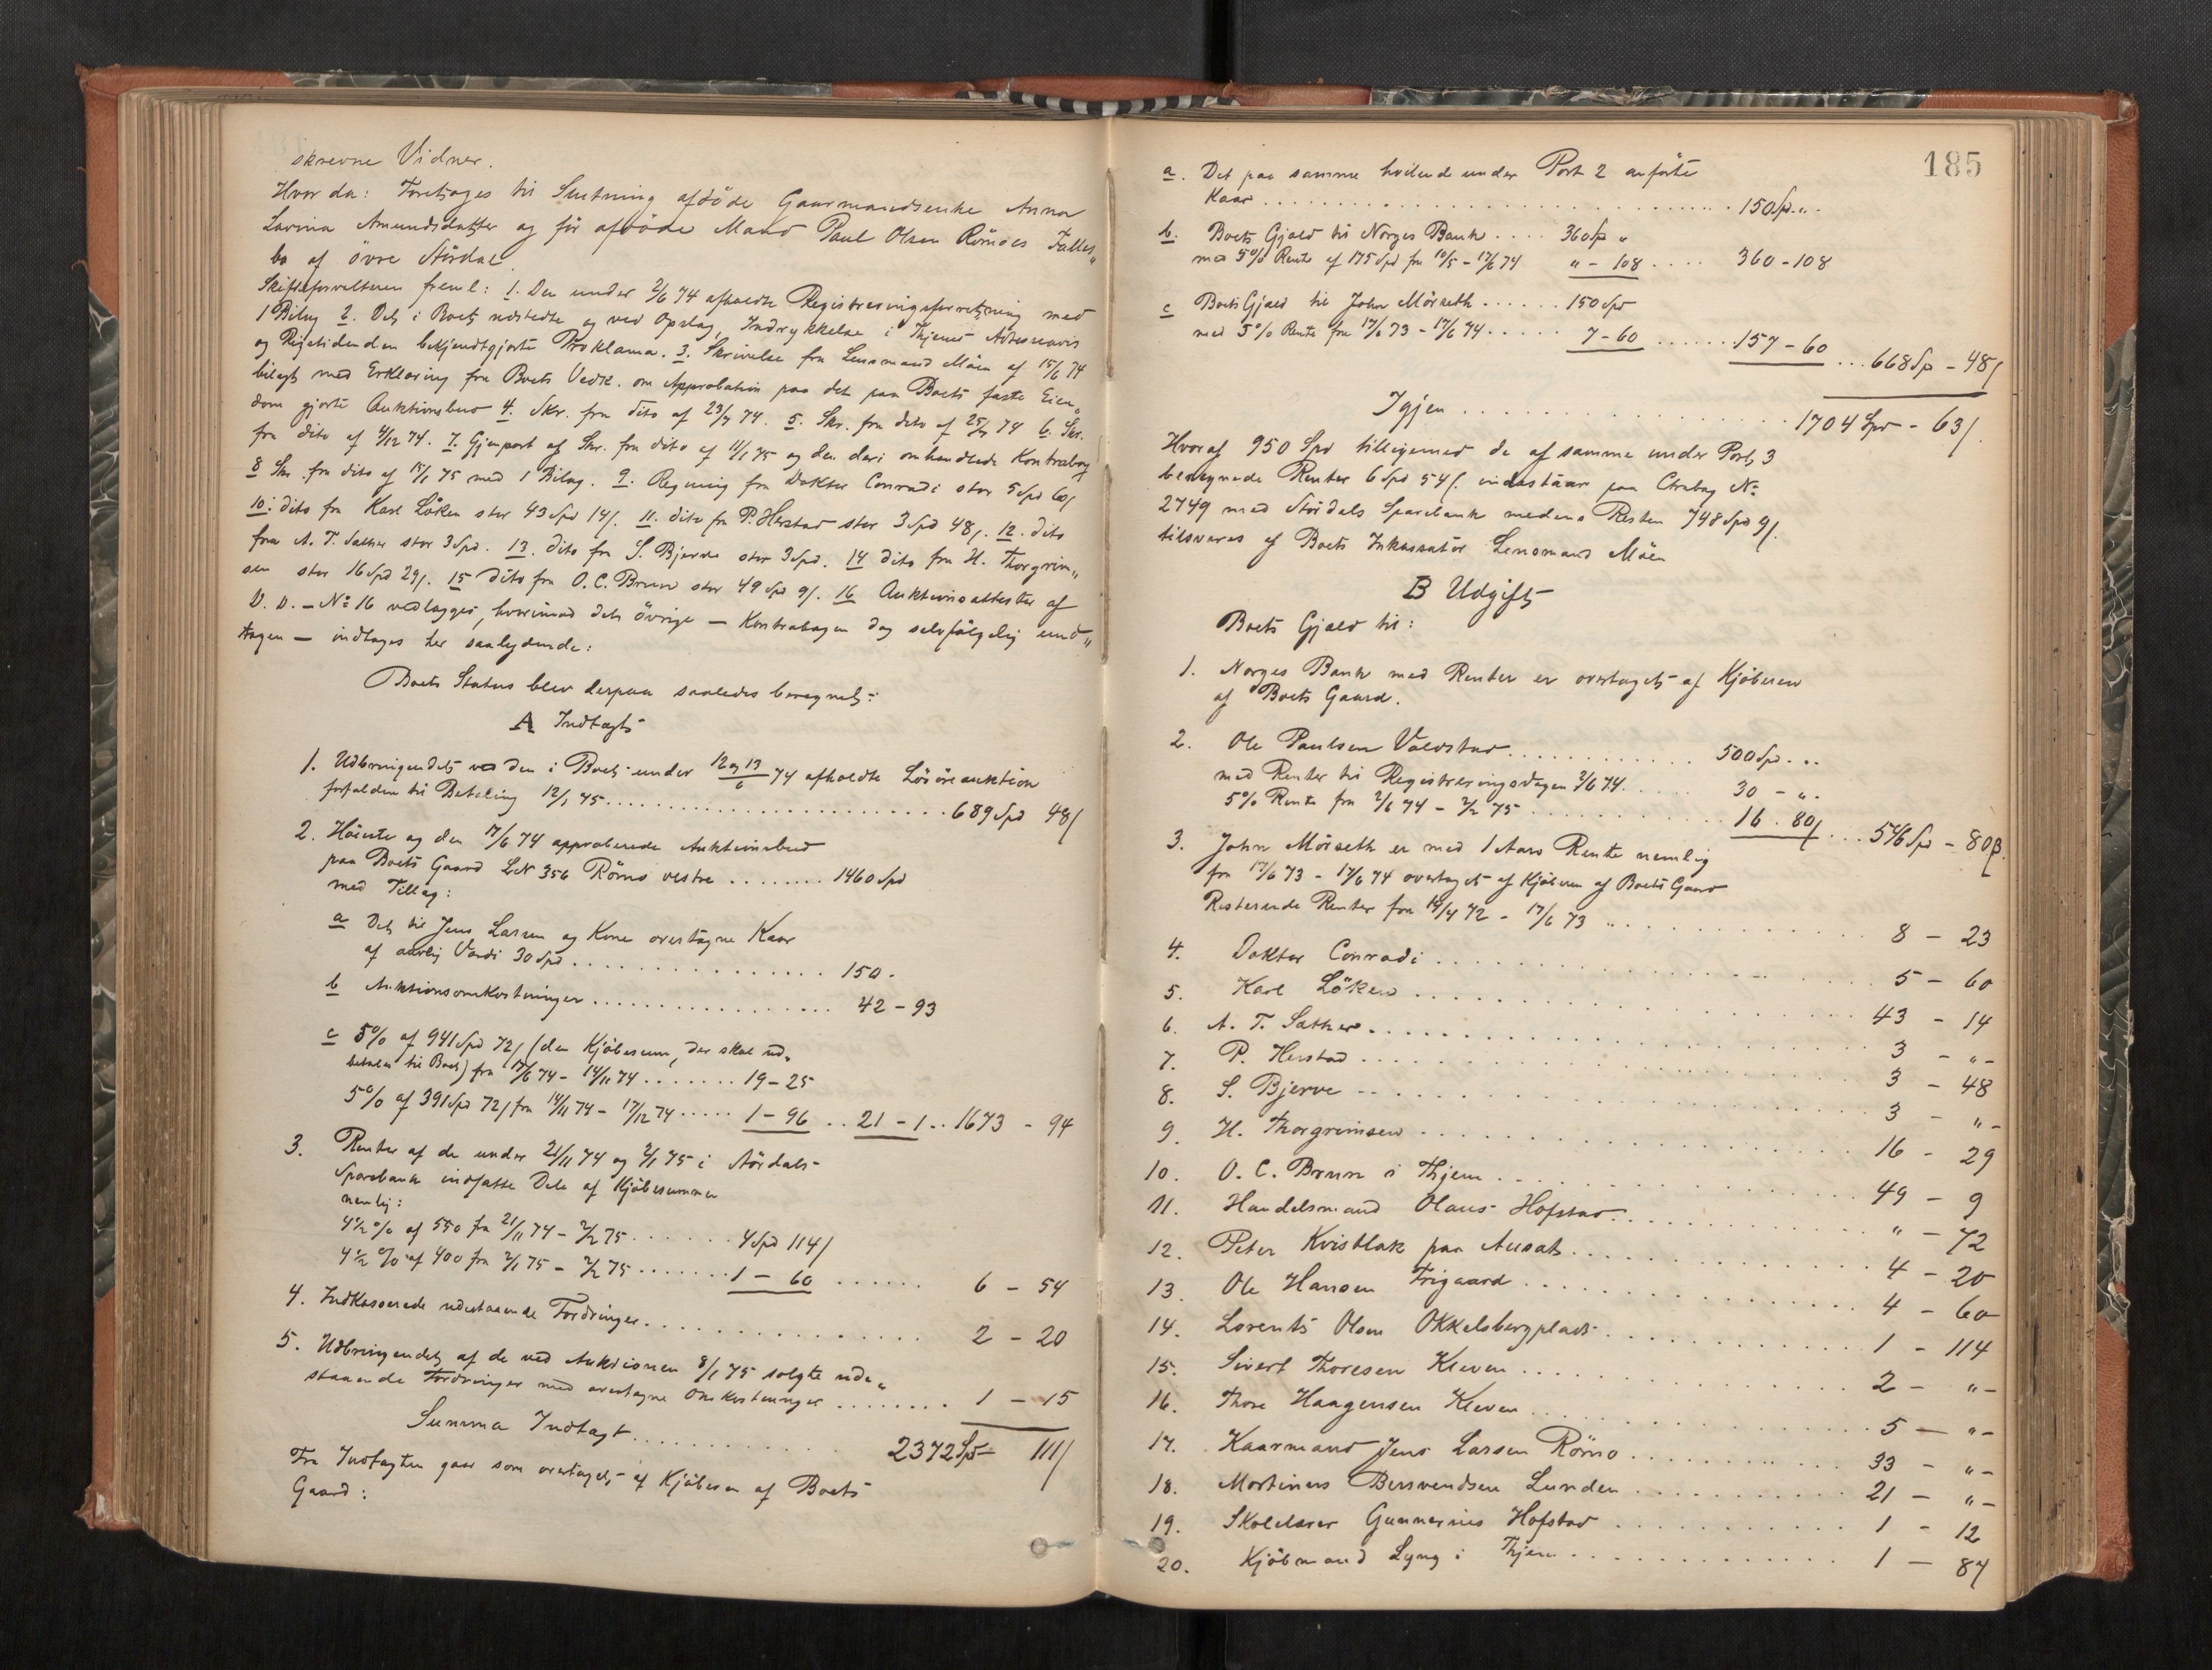 skrevne Vidner.
Hvorda: Foretages til Slutning afdöde Gaarmandsenke Anna
Lovina Amundsdatter og för afdöde Mand Paul Olsen Römoes Fælles„
bo af övre Stördal.
Skifteforvalteren freml: 1. Den under 2/6 74 afholdte Registreringsforretning med
1 Bilag 2. Det i Boet udstedte og ved Opslag, Indrykkelse i Thjems Adresseavis
og Rigstidenden bekjendtgjorte Proklama. 3. Skrivelse fra Lensmand Möen af 15/6 74
bilagt med Erklæring fra Boets Vedk. om Approbation paa det paa Boets faste Eien„
dom gjorte Auktionsbud 4. Skr. fra dito af 23/7 74. 5. Skr. fra dito af 25/7 74 6. Skr.
fra dito af 4/12 74. 7. Gjenpart af Skr. fra dito af 11/1 75 og den deri omhandlede Kontrabog
8 Skr. fra dito af 15/1 75 med 1 Bilag. 9. Regning fra Doktor Conradi stor 5 Spd 60/
10: dito fra Karl Löken stor 43 Spd 14/. 11. dito fra P. Herstad stor 3 Spd 48/. 12. dito
fra A. T. Sather stor 3 Spd. 13. dito fra S. Bjerve stor 3 Spd. 14 dito fra H. Thorgrim„
sen stor 16 Spd 29/. 15 dito fra O. C. Brun stor 49 Spd 9/. 16 Auktionsattester af
D. D. – No 16 vedlægges, hvorimod det övrige – Kontrabogen dog selvfölgelig und„
tagen – indtages her saalydende:
Boets Status blev derpaa saaledes beregnet:
A Indtægt
1. Udbringendet ved den i Boet under 12 og 13/6 74 afholdte Lösöreauktion
forfalden til Betaling 12/1 75 . . . . . 689 Spd 48/
2. Höieste og den 17/6 74 approberede Auktionsbud
paa Boets Gaard LN 356 Römo vestre . . . . . 1460 Spd
med Tillæg:
a Det til Jens Larsen og Kone overtagne Kaar
af aarlig Værdi 30 Spd . . . . . 150.
b Auktionsomkostninger . . . . . 42 – 93
c 5% af 941 Spd 72/ (den Kjöbesum, der skal ud„
betales til Boet) fra 17/6 74 – 14/11 74 . . . . . 19 – 25
5% af 391 Spd 72/ fra 14/11 74 – 17/12 74 . . . . . 1 – 96 . . 21 – 1 . . 1673 – 94
3. Renter af de under 21/11 74 og 2/1 75 i Stördals
Sparebank indsatte Dele af Kjöbesummen
nemlig:
4½ % af 550 fra 21/11 74 – 2/2 75 . . . . . 4 Spd 114/
4½ % af 400 fra 2/1 75 – 2/2 75 . . . . . 1 – 60 . . . . . 6 – 54
4. Indkasserede udestaaende Fordringer . . . . . 2 – 20
5. Udbringendet af de ved Auktionen 8/1 75 solgte ude„
staaende Fordringer med overtagne Omkostninger . . . . . 1 – 15
Summa Indtægt . . . . . 2372 Spd – 111/
Fra Indtægten gaar som overtaget af Kjöberen af Boets
Gaard:
185
a. Det paa samme hvilende under Post 2 anförte
Kaar . . . . . 150 Spd „.
b. Boets Gjæld til Norges Bank . . . . 360 Sp „
med 5% Rente af 175 Spd fra 10/5 – 17/6 74 „ – 108 . . . . 360 – 108
c Boets Gjæld til John Mörseth . . . . . 150 Spd
med 5% Rente fra 17/6 73 – 17/6 74 . . . . . 7 – 60 . . . . . 157 – 60 . . . 668 Sp – 48/
Igjen . . . . . 1704 Spd – 63/.
Hvoraf 950 Spd tilligemed de af samme under Post 3
beregnede Renter 6 Spd 54/. indestaar paa Ctrabog No
2749 med Stördals Sparebank medens Resten 748 Spd 9/.
tilsvares af Boets Inkassator Lensmand Möen
B Udgift
Boets Gjæld til:
1. Norges Bank med Renter er overtaget af Kjöberen
af Boets Gaard.
2. Ole Paulsen Voldstad . . . . . 500 Spd „.
med Renter til Registreringsdagen 2/6 74 . . . . . 30 – „.
5% Rente fra 2/6 74 – 2/2 75 . . . . . 16 . 80/ . . . 546 Spd – 80 β.
3. John Mörseth er med 1 Aars Rente nemlig
fra 17/6 73 – 17/6 74 overtaget af Kjöberen af Boets Gaard
Resterende Renter fra 14/4 72 – 17/6 73 . . . . . 8 – 23
4. Doktor Conradi . . . . . 5 – 60
5. Karl Löken . . . . . 43 – 14
6. A. T. Sather . . . . . 3 – „ –
7. P. Herstad . . . . . 3 – 48
8. S. Bjerve . . . . . 3 – „ –
9. H. Thorgrimsen . . . . . 16 – 29
10. O. C. Brun i Thjem . . . . . 49 – 9
11. Handelsmand Olaus Hofstad . . . . . „ – 72
12. Peter Kvistlak paa Ausat . . . . . 4 – 20
13. Ole Hansen Frigaard . . . . . 4 – 60
14. Lorents Olsen Okkelsbergplads . . . . . 1 – 114
15. Sivert Thoresen Kleven . . . . . 2 – „ –
16. Thore Haagensen Kleven . . . . . 5 – „ –
17. Kaarmand Jens Larsen Römo . . . . . 33 – „ –
18. Mortinus Bersvendsen Lunden . . . . . 21 – „ –
19. Skolelærer Gunnerius Hofstad . . . . . 1 – 12
20. Kjöbmand Lyng i Thjem . . . . . 1 – 87